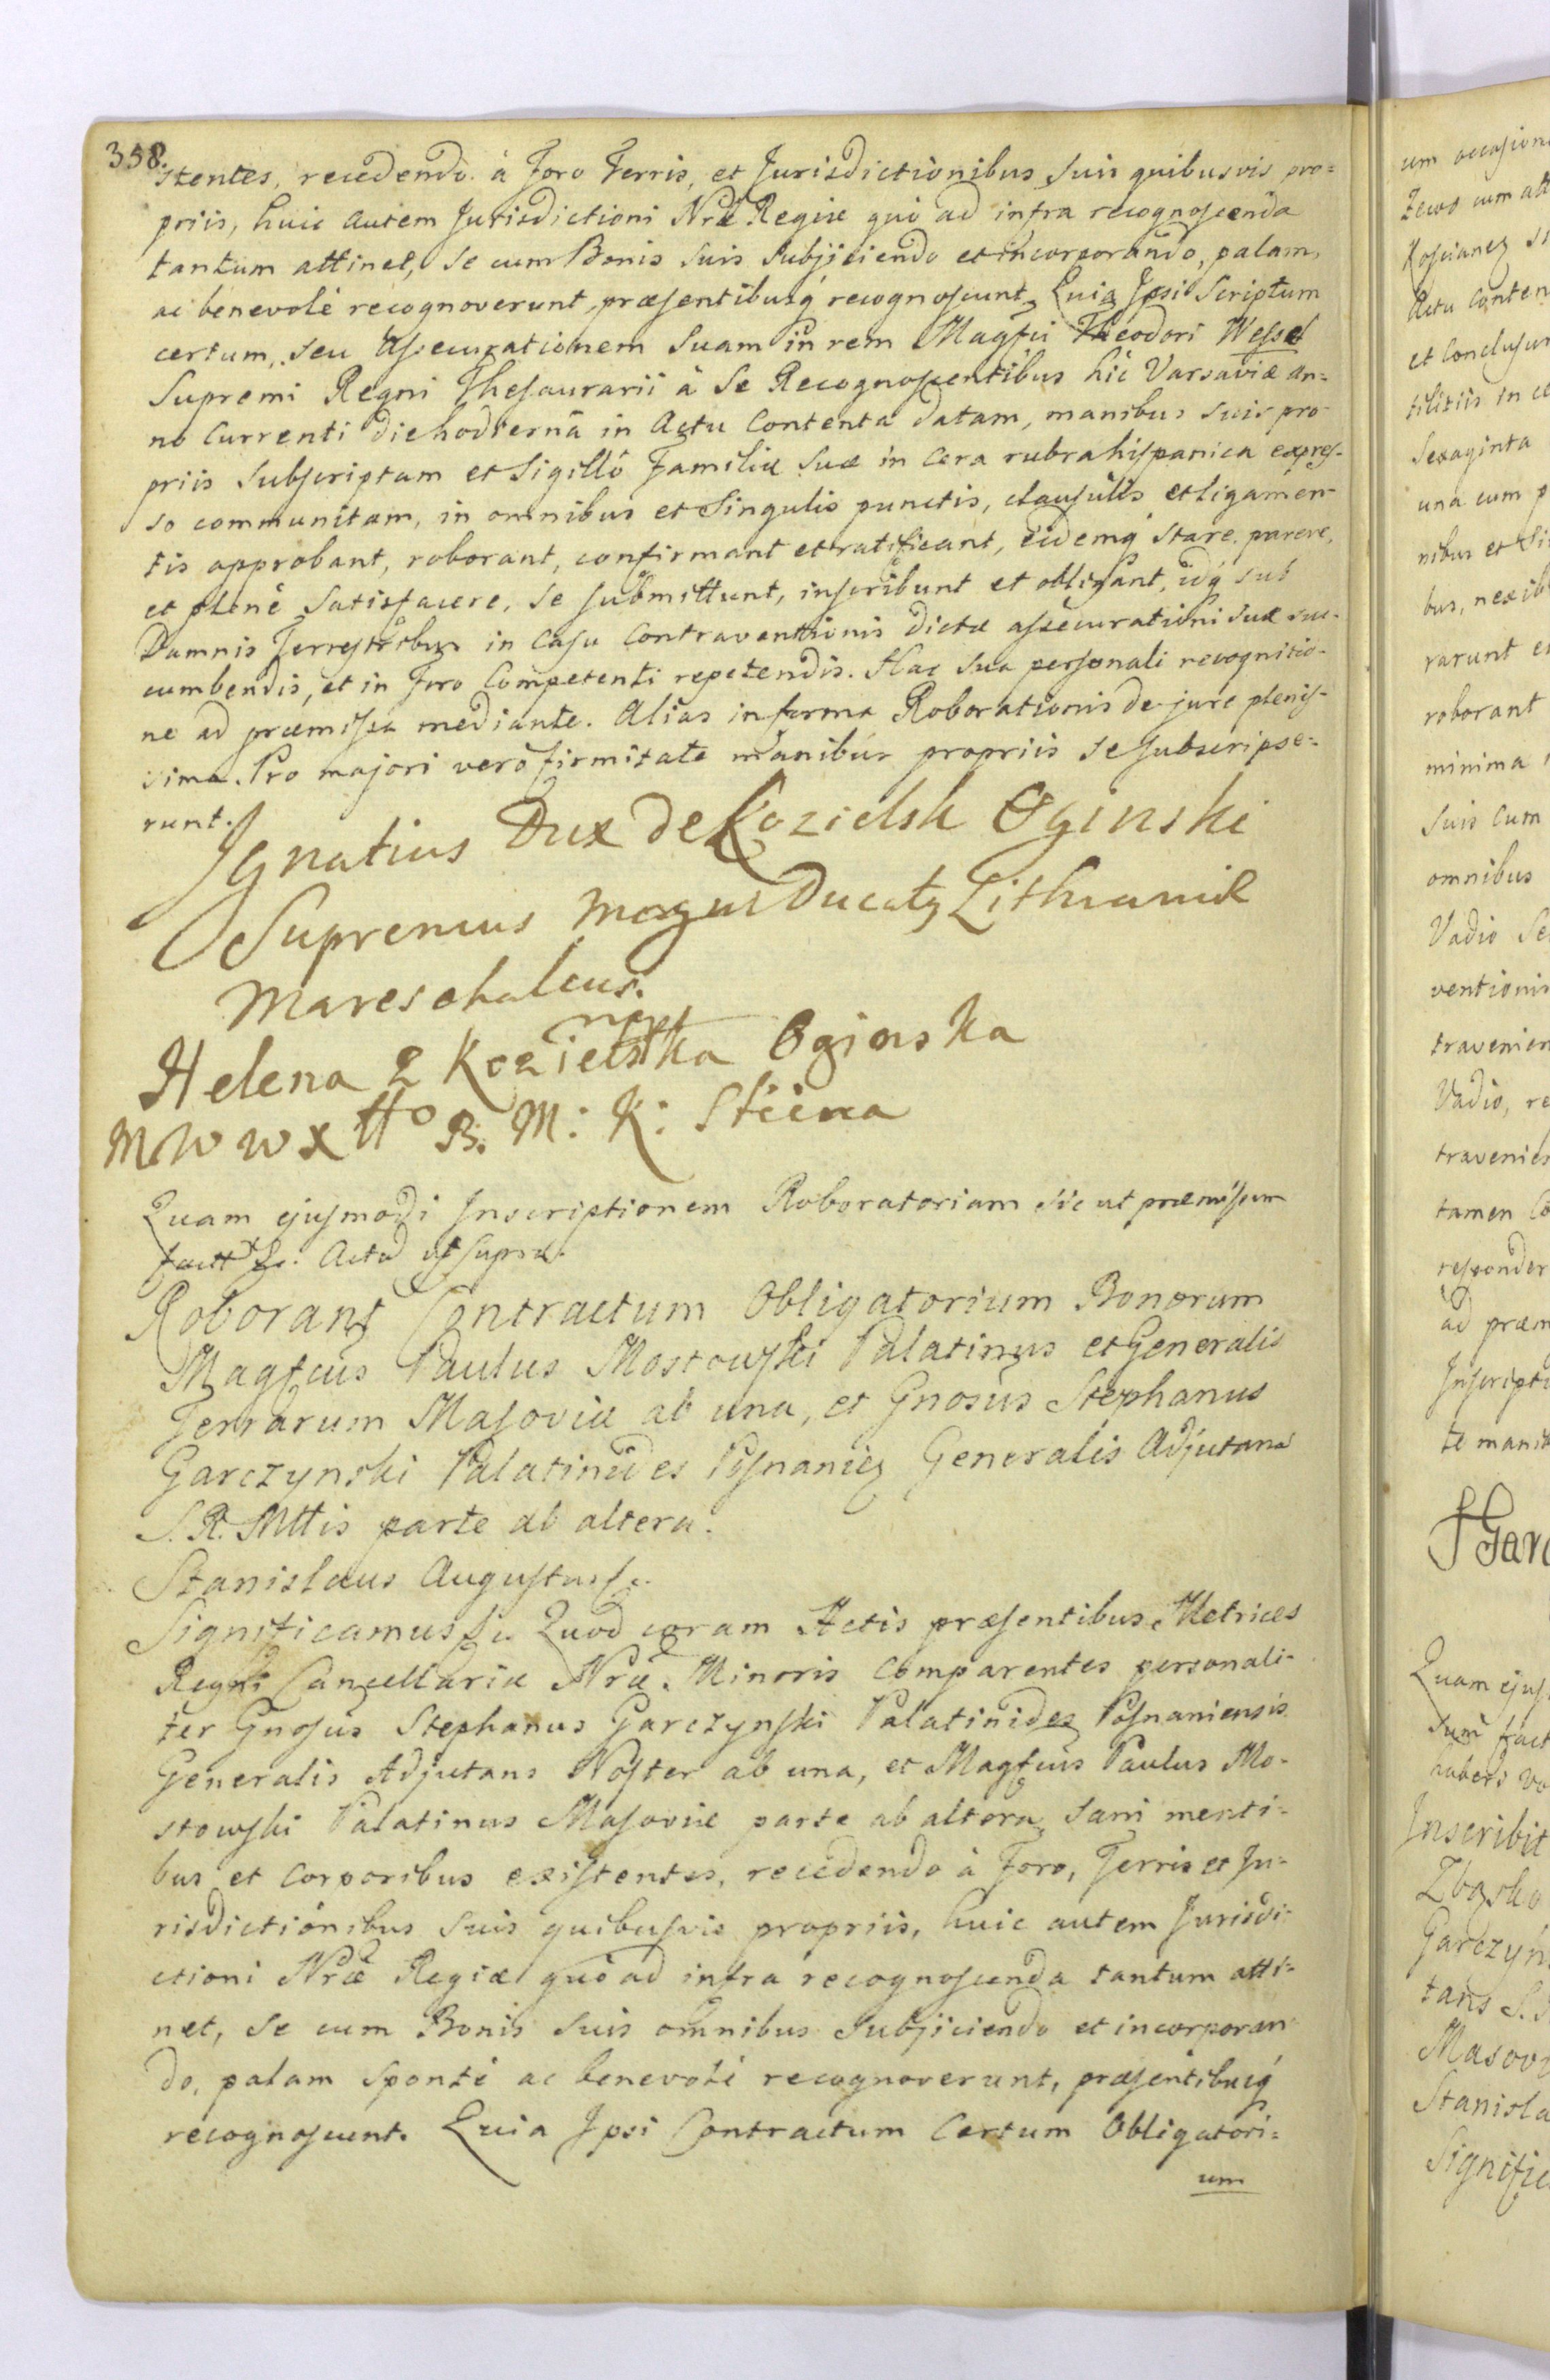 358.
stentes, recedendo à Foro Terris, et Jurisdictionibus Suis quibusvis pro=
priis, huic autem Jurisdictioni Nræ Regiæ quò ad infra recognoscenda
tantum attinet, se cum Bonis suis subjiciendo et incorporando, palam,
ac benevolè recognoverunt, præsentibusq́ recognoscunt, Quia Ipsi Scriptum
certum, seu Assecurationem Suam in rem Magfci Theodori Wessel
Supremi Regni Thesaurarii à Se Recognoscentibus hic Varsaviæ an=
no Currenti die hodierna in Actu Contenta datam, manibus suis pro-
priis Subscriptam et Sigillo Familiæ Suæ in Cera rubra hispanica expres-
so communitam, in omnibus et Singulis punctis, clausulis et ligamen-
tis approbant, roborant, confirmant et ratificant, eidemq́ stare parere,
et plenè Satisfacere, se submittunt, inscribunt et obligant, idq́ sub
Damnis Terrestribus in Casu Contraventionis dictæ assecurationi suæ suc-
cumbendis, et in Foro Competenti repetendis. Hac sua personali recognitio-
ne ad præmissa mediante. Alias in forma Roborationis de jure plenis-
sima. Pro majori verò firmitate manibus propriis se subscripse=
runt.
Ignatius Dux de Kozielsk Oginski
Supremus Magni Ducatus Lithuaniæ
Mareschalcus.
Helena z Kozielska Oginska
M W W X Ltto B. M: K:
Quam ejusmodi Inscriptionem Roboratoriam sic ut præmissum
factt &c. Actu ut supra.
Roborant Contractum Obligatorium Bonorum
Magfcus Paulus Mostowski Palatinus et Generalis
Terrarum Masoviæ ab una, et Gnosus Stephanus
Garczynski Palatinides Posnaniens Generalis Adjutans
S. R. Mttis parte ab altera.
Stanislaus Augustus &c.
Significamus &c. Quod coram Actis præsentibus Metrices
Regni Cancellariæ Nræ Minoris Comparentes personali-
ter Gnosus Stephanus Garczynski Palatinides Posnaniensis
Generalis Adjutans Noster ab una, et Magfcus Paulus Mo-
stowski Palatinus Masoviæ parte ab altera, sani menti-
bus et Corporibus existentes, recedendo à Foro, Terris et Ju-
risdictionibus suis quibusvis propriis, huic autem Jurisdi-
ctioni Nræ Regiæ quò ad infra recognoscenda tantum atti-
net, se cum Bonis suis omnibus subjiciendo et incorporan-
do, palam sponte ac benevolè recognoverunt, præsentibusq́
recognoscunt. Quia Ipsi Contractum Certum Obligatori=
um